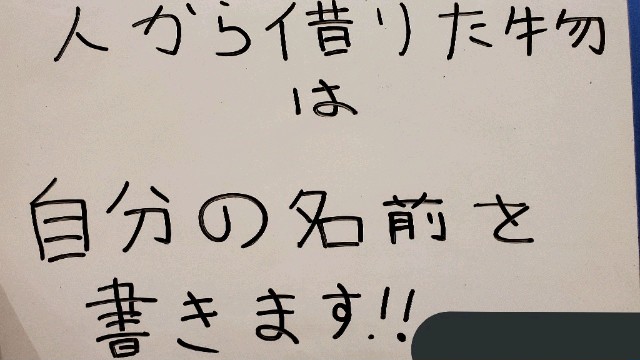 人から借りた物
は
自分の名前を
書きます!!